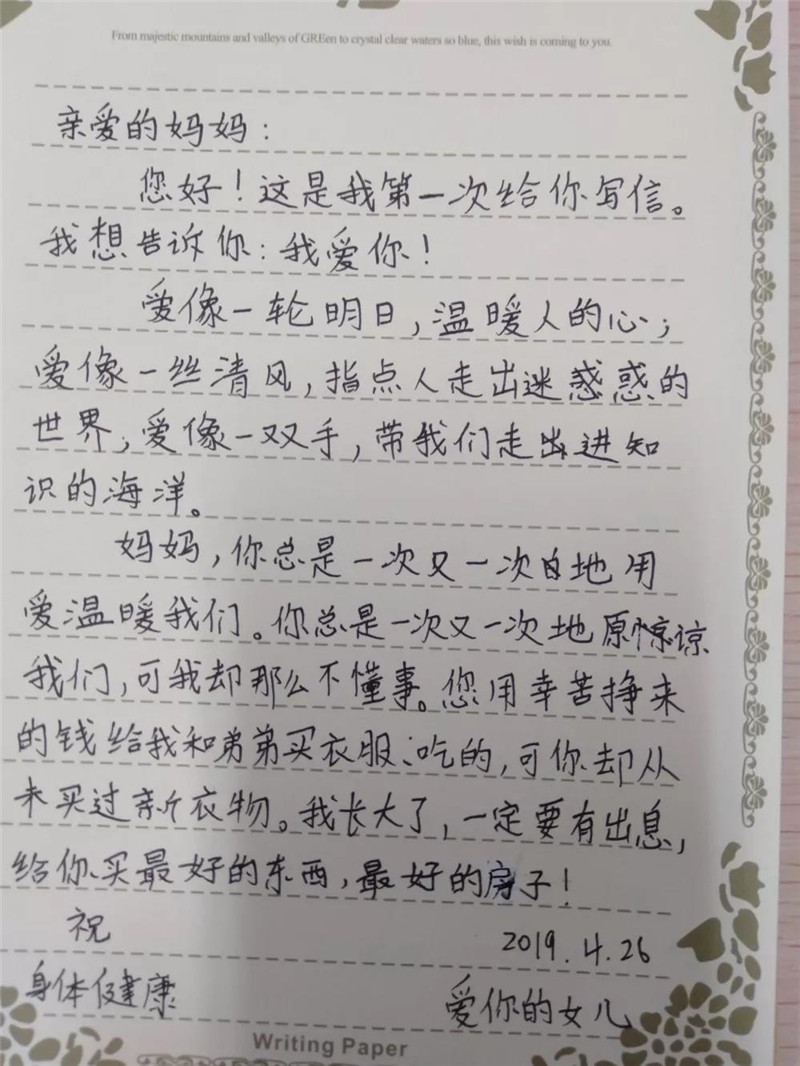 From majestic mountains and valleys of GREen to crystal clear waters so blue, this wish is coming to you.
亲爱的妈妈：
您好！这是我第一次给你写信。
我想告诉你：我爱你！
爱像一轮明日，温暖人的心；
爱像一丝清风，指点人走出迷惑惑的
世界；爱像一双手，带我们走出进知
识的海洋。
妈妈，你总是一次又一次白地用
爱温暖我们。你总是一次又一次地原惊谅
我们，可我却那么不懂事。您用幸苦挣来
的钱给我和弟弟买衣服、吃的，可你却从
未买过新衣物。我长大了，一定要有出息，
给你买最好的东西，最好的房子！
祝
2019.4.26
身体健康
爱你的女儿
Writing Paper